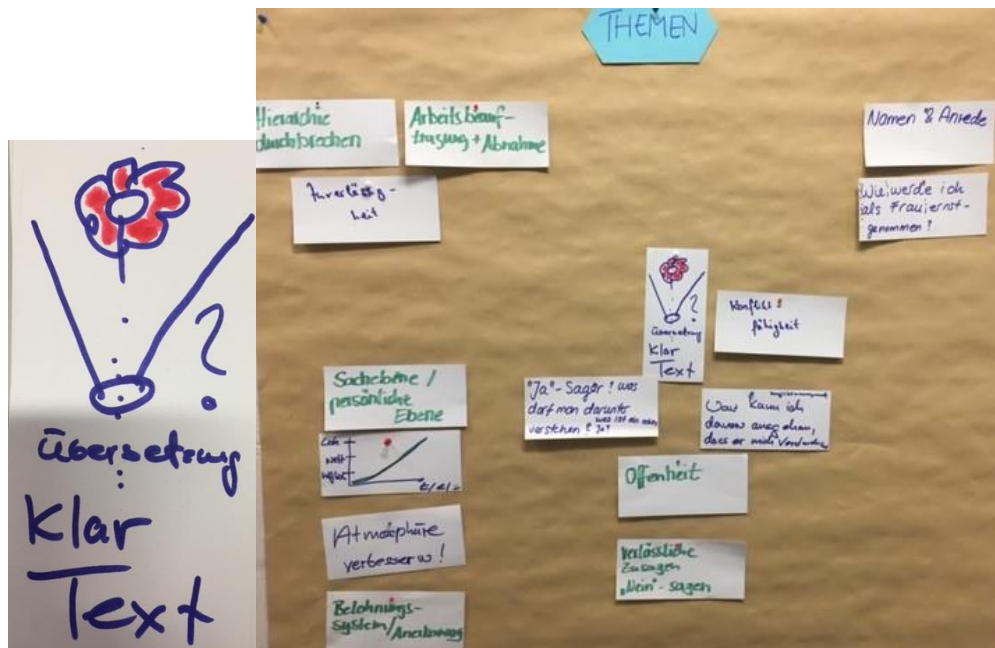 Übersetzung
Klar
Text
?
THEMEN
Hierarchie
durchbrechen
Arbeitsbeauf-
tragung + Abnahme
Namen & Anrede
Zuverlässig-
keit
Wie werde ich
als Frau ernst-
genommen?
?
Übersetzung
Klar
Text
Konflikt
fähigkeit
Sachebene /
persönliche
Ebene
"Ja"-Sager! was
darf man darunter
verstehen?
Ja?
kann ich
davon ausgehen,
dass er mich
Offenheit
Atmosphäre
verbessern!
Verlässliche
Zusagen
"Nein"-sagen
Belohnungs-
system/Anerkennung